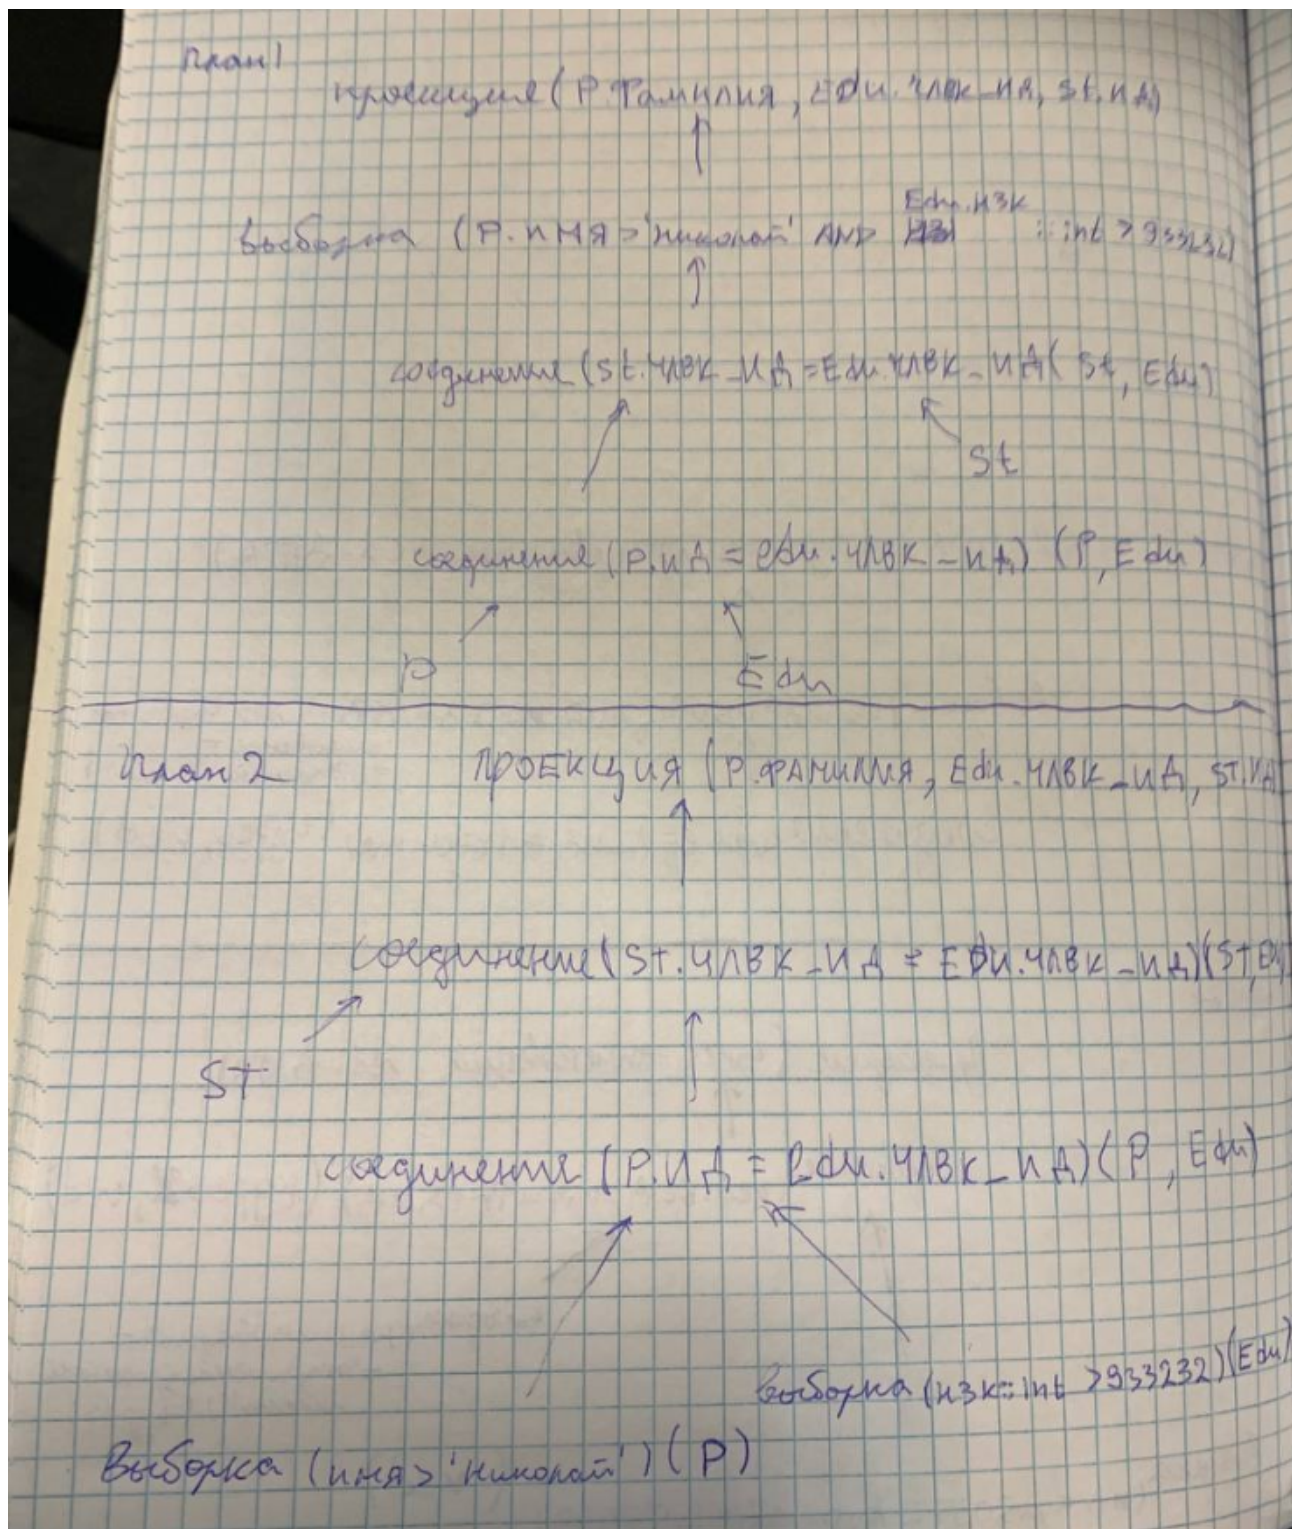 План 1
проекция (P.Фамилия, Edu.члвк_ид, St.ид)
Edu.НЗК
выборка (P.имя > 'николай' AND ::int > 933232)
соединение (St.члвк_ид = Edu.члвк_ид (St, Edu)
St
соединения (P.ид = edu.члвк_ид) (P, Edu)
P Edu
План 2 ПРОЕКЦИЯ (P.ФАМИЛИЯ, Edu.члвк_ид, ST.ид
соединение (ST.члвк_ид = Edu.члвк_ид)(ST, Edu
ST
соединение (P.ид = edu.члвк_ид) (P, Edu)
выборка (нзк::int > 933232) (Edu)
Выборка (имя > 'николай') (P)